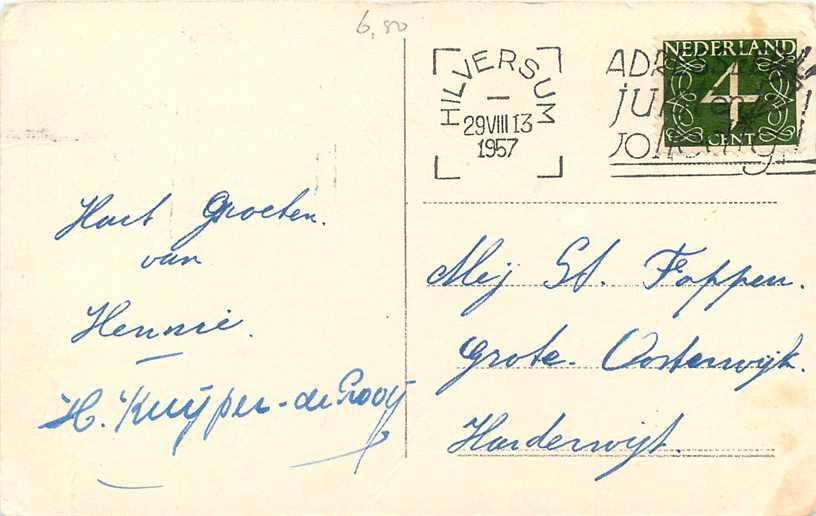 6,80
HILVERSUM
29 VIII 13
1957
NEDERLAND
4
CENT
Hart Groeten.
van
Hennie.
H. Kuyper-de Prooy
Mej St. Foppen.
Grote Oosterwijk.
Harderwijk.